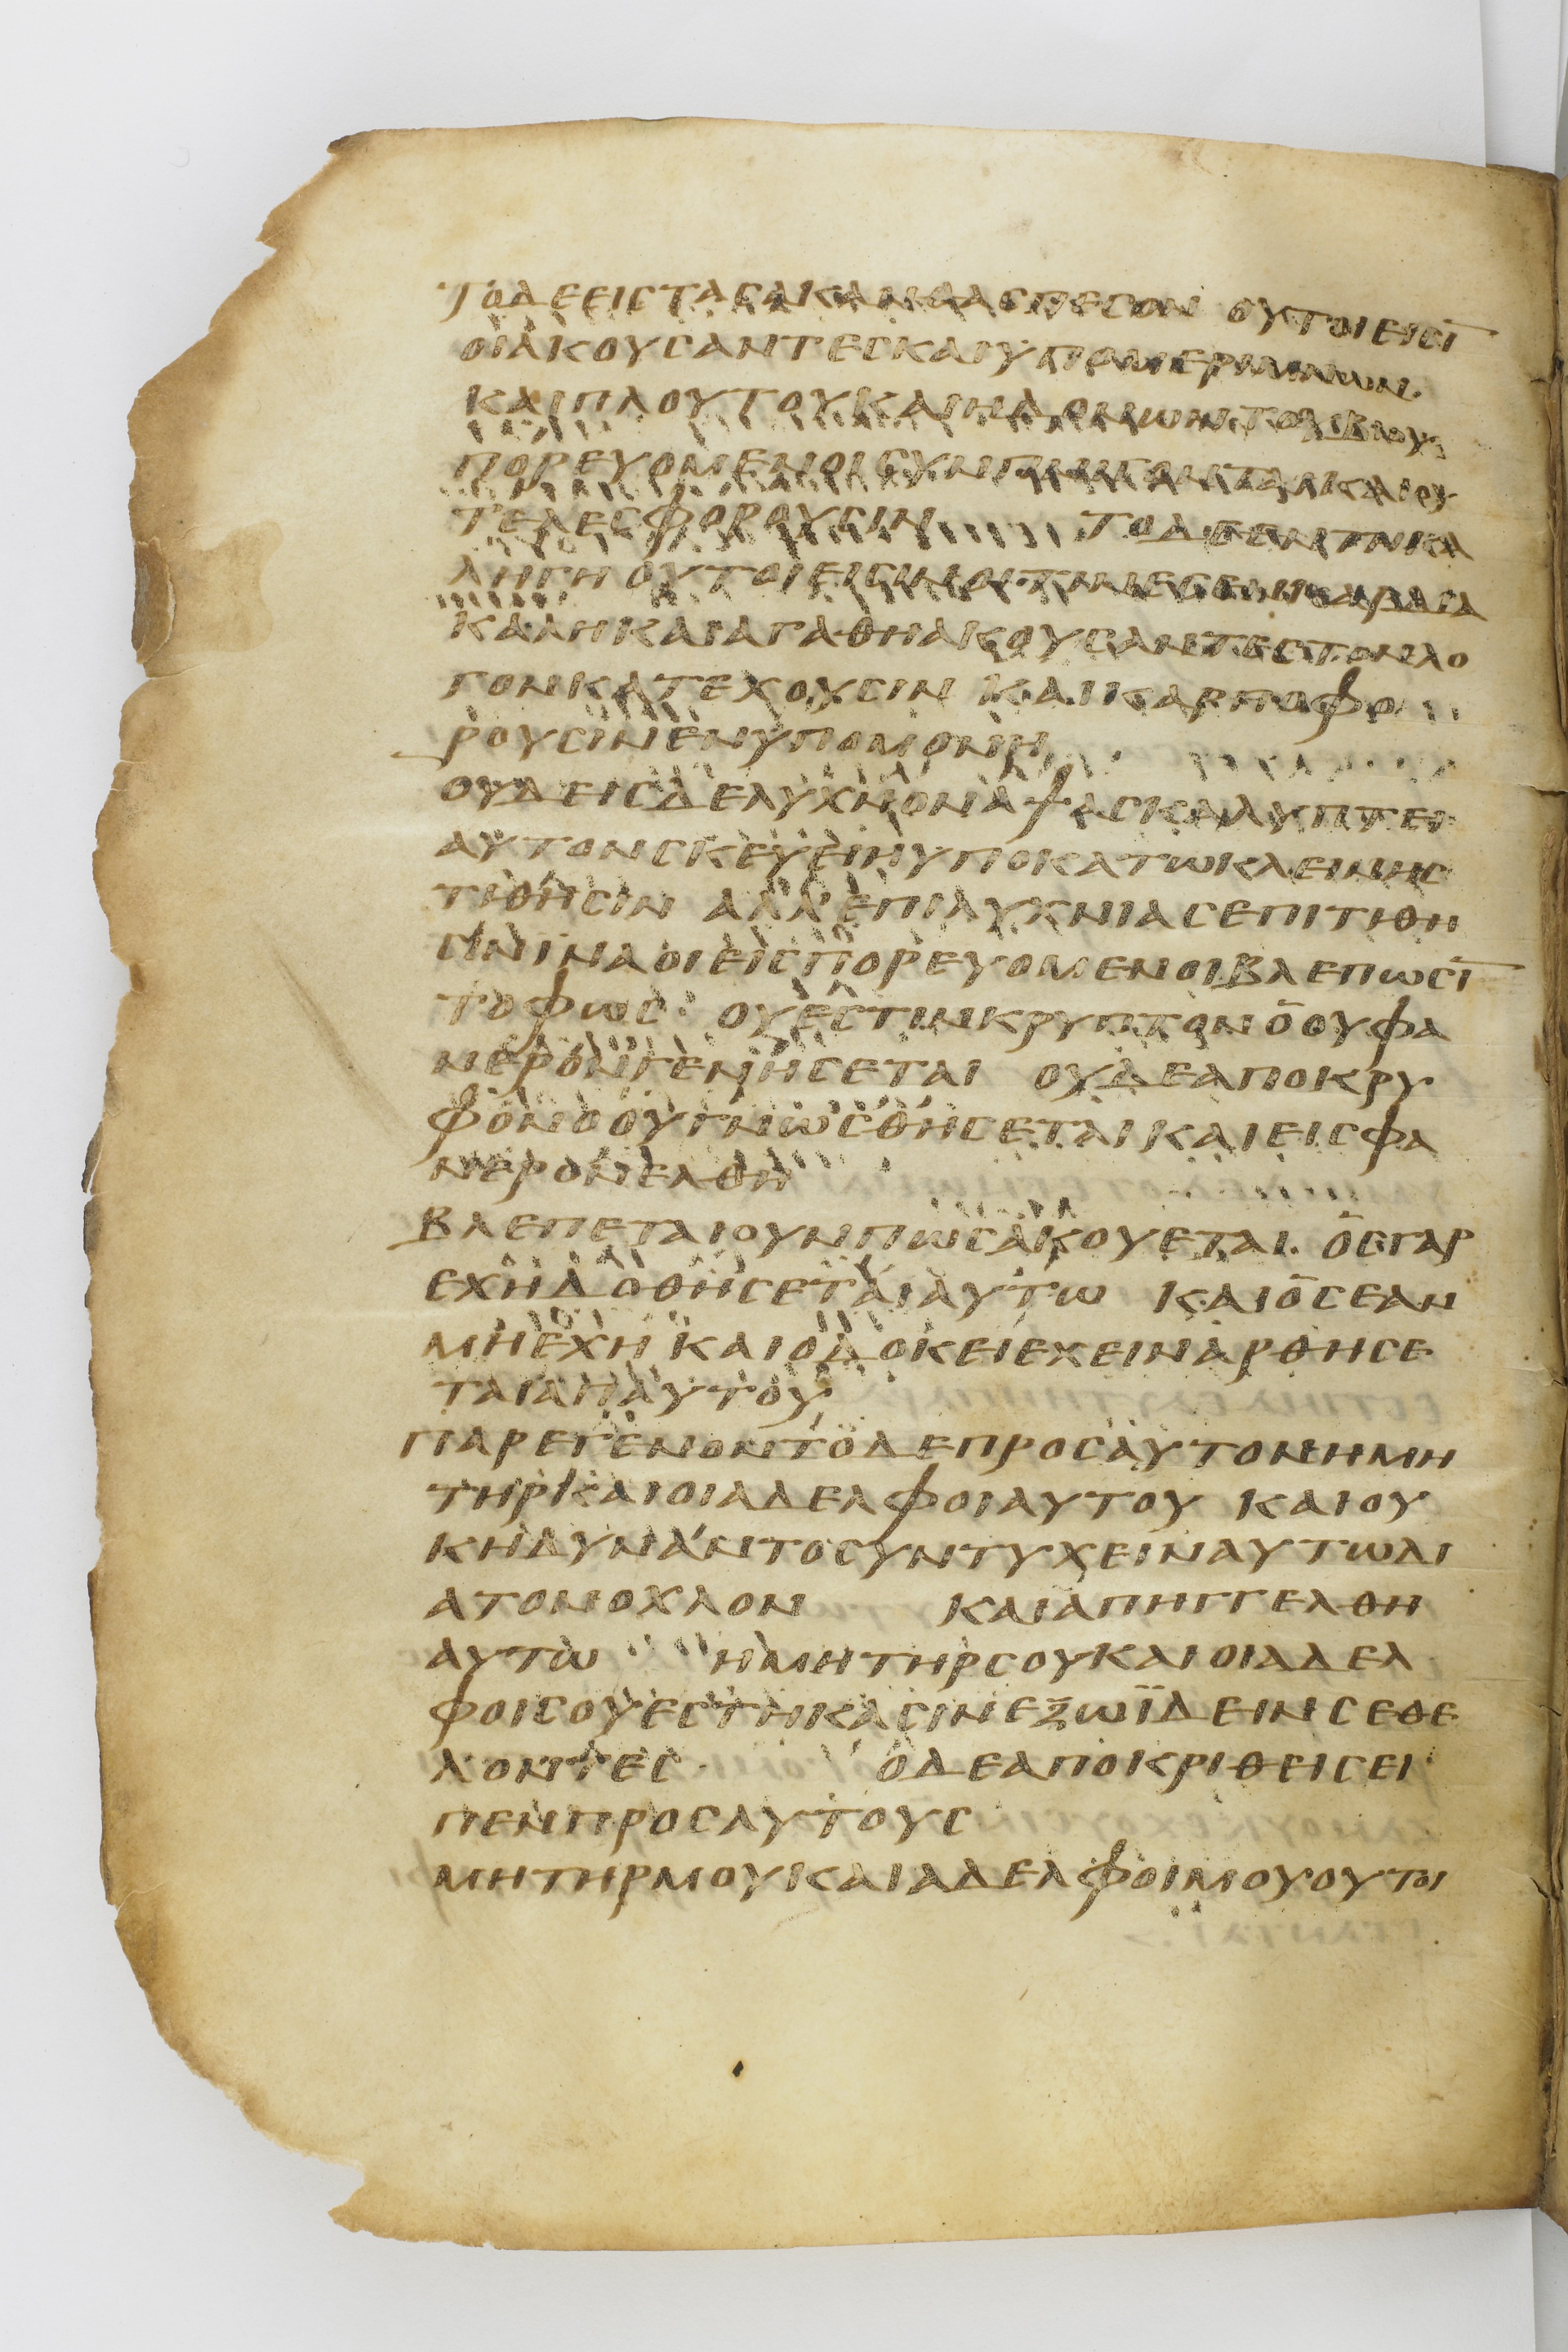 ΤΟΔΕΕΙΣΤΑΣΑΚΑΝΘΑΣΠΕΣΟΝ ΟΥΤΟΙΕΙΣΙ̅
ΟΙΑΚΟΥΣΑΝΤΕΣΚΑΙΥΠΟΜΕΡΙΜΝΩΝ
ΚΑΙΠΛΟΥΤΟΥΚΑΙΗΔΟΝΩΝΤΟΥΒΙΟΥ
ΠΟΡΕΥΟΜΕΝΟΙΣΥΝΠΝΙΓΟΝΤΑΙΚΑΙΟΥ
ΤΕΛΕΣΦΟΡΟΥΣΙΝ ΤΟΔΕΕΝΤΗΚΑ
ΛΗΓΗΟΥΤΟΙΕΙΣΙΝΟΙΤΙΝΕΣΕΝΚΑΡΔΙΑ
ΚΑΛΗΚΑΙΑΓΑΘΗΑΚΟΥΣΑΝΤΕΣΤΟΝΛΟ
ΓΟΝΚΑΤΕΧΟΥΣΙΝ ΚΑΙΚΑΡΠΟΦΟ
ΡΟΥΣΙΝΕΝΥΠΟΜΟΝΗ
ΟΥΔΕΙΣΔΕΛΥΧΝΟΝΑΨΑΣΚΑΛΥΠΤΕΙ
ΑΥΤΟΝΣΚΕΥΕΙΗΥΠΟΚΑΤΩΚΛΕΙΝΗΣ
ΤΙΘΗΣΙΝ ΑΛΛΕΠΙΛΥΧΝΙΑΣΕΠΙΤΙΘΗ
ΣΙΝΙΝΑΟΙΕΙΣΠΟΡΕΥΟΜΕΝΟΙΒΛΕΠΩΣΙ̅
ΤΟΦΩΣ· ΟΥΕΣΤΙΝΚΡΥΠΤΟΝΟΟΥΦΑ
ΝΕΡΟΝΓΕΝΗΣΕΤΑΙ ΟΥΔΕΑΠΟΚΡΥ
ΦΟΝΟΟΥΓΝΩΣΘΗΣΕΤΑΙΚΑΙΕΙΣΦΑ
ΝΕΡΟΝΕΛΘΗ
ΒΛΕΠΕΤΑΙΟΥΝΠΩΣΑΚΟΥΕΤΑΙ· ΟΣΓΑΡ
ΕΧΗΔΟΘΗΣΕΤΑΙΑΥΤΩ ΚΑΙΟΣΕΑΝ
ΜΗΕΧΗΚΑΙΟΔΟΚΕΙΕΧΕΙΝΑΡΘΗΣΕ
ΤΑΙΑΠΑΥΤΟΥ
ΠΑΡΕΓΕΝΟΝΤΟΔΕΠΡΟΣΑΥΤΟΝΗΜΗ
ΤΗΡΚΑΙΟΙΑΔΕΛΦΟΙΑΥΤΟΥ ΚΑΙΟΥ
ΚΗΔΥΝΑΝΤΟΣΥΝΤΥΧΕΙΝΑΥΤΩΔΙ
ΑΤΟΝΟΧΛΟΝ ΚΑΙΑΠΗΓΓΕΛΘΗ
ΑΥΤΩ ΗΜΗΤΗΡΣΟΥΚΑΙΟΙΑΔΕΛ
ΦΟΙΣΟΥΕΣΤΗΚΑΣΙΝΕΞΩΪΔΕΙΝΣΕΘΕ
ΛΟΝΤΕΣ· ΟΔΕΑΠΟΚΡΙΘΕΙΣΕΙ
ΠΕΝΠΡΟΣΑΥΤΟΥΣ
ΜΗΤΗΡΜΟΥΚΑΙΑΔΕΛΦΟΙΜΟΥΟΥΤΟΙ